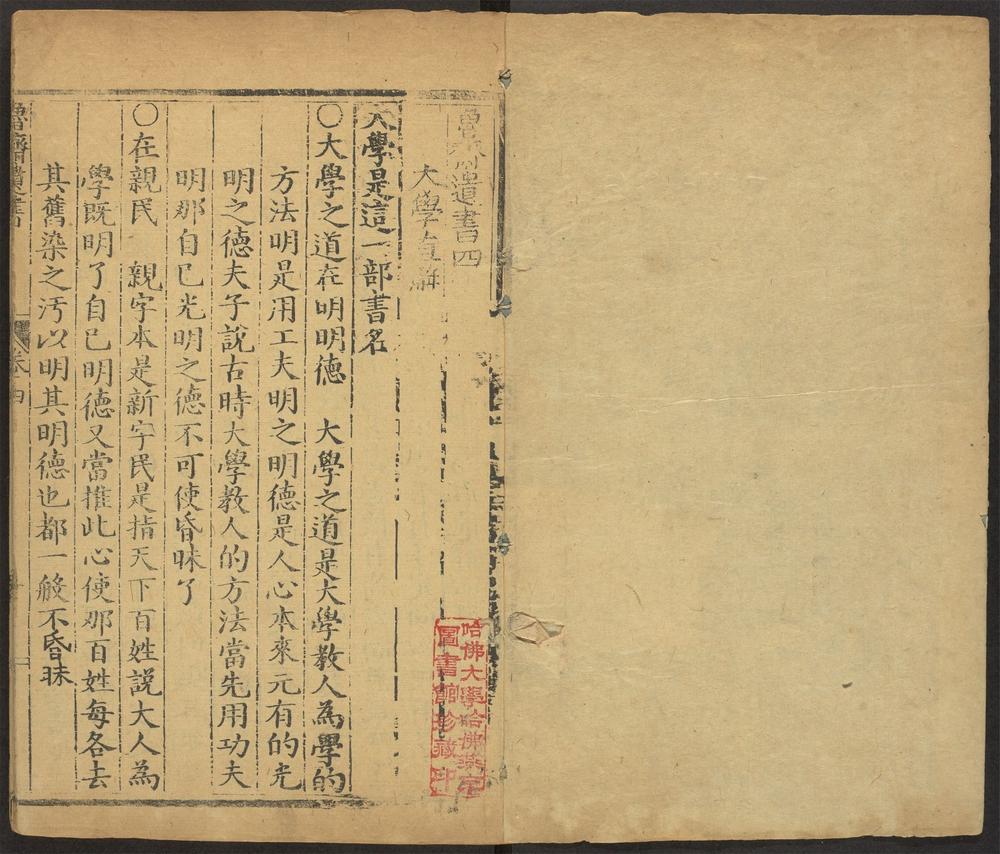 魯齋遺書四
大學直解
大學是這一部書名
○大學之道在明明德 大學之道是大學教人為學的
方法明是用工夫明之明德是人心本來元有的光
明之德夫子說古時大學教人的方法當先用功夫
明那自己光明之德不可使昏昧了
○在親民 親字本是新字民是指天下百姓說大人為
學既明了自己明德又當推此心使那百姓每各去
其舊染之汚以明其明德也都一般不昏昧
魯齋遺書 卷之四
哈佛大學哈佛燕京
圖書館珍藏印